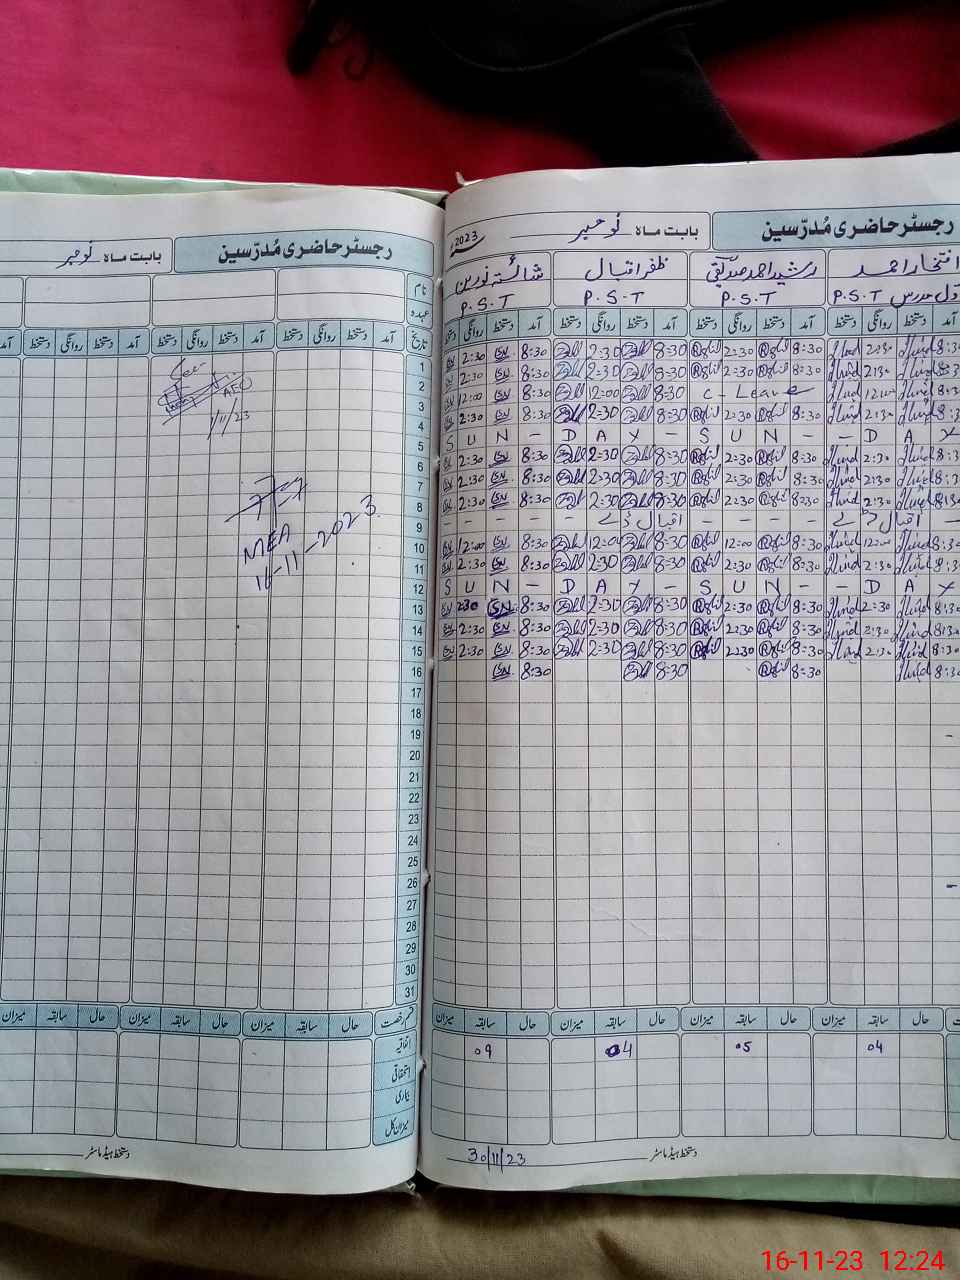 رجسٹر حاضری مُدرّسین بابت ماہ نومبر
نام
عہدہ
تاریخ آمد دستخط روانگی دستخط آمد دستخط روانگی دستخط آمد
1
2
3
4
5
6
7
8
9
10
11
12
13
14
15
16
17
18
19
20
21
22
23
24
25
26
27
28
29
30
31
AEO
1/11/23
MEA
16-11-2023
قسم رخصت حال سابقہ میزان حال سابقہ میزان حال سابقہ میزان
اتفاقیہ
استحقاقی
بیماری
میزان کل
دستخط ہیڈ ماسٹر
رجسٹر حاضری مُدرّسین بابت ماہ نومبر 2023ء
افتخار احمد رشید احمد صدیقی ظفر اقبال شائستہ نورین
اول مدرس P.S.T P.S.T P.S.T P.S.T
آمد دستخط روانگی دستخط آمد دستخط روانگی دستخط آمد دستخط روانگی دستخط آمد دستخط روانگی دستخط
2:30 SN 8:30 2:30 8:30 2:30 8:30 2:30 8:3
2:30 SN 8:30 2:30 8:30 2:30 8:30 2:30 8:3
12:00 SN 8:30 12:00 8:30 C - Leave 12:00 8:3
2:30 SN 8:30 2:30 8:30 2:30 8:30 2:30 8:3
S U N - D A Y - S U N - - D A Y
2:30 SN 8:30 2:30 8:30 2:30 8:30 2:30 8:3
2:30 SN 8:30 2:30 8:30 2:30 8:30 2:30 8:3
2:30 SN 8:30 2:30 8:30 2:30 8:30 2:30 8:30
- - - - اقبال ڈے - - - - - اقبال ڈے -
12:00 SN 8:30 12:00 8:30 12:00 8:30 12:00 8:30
2:30 SN 8:30 2:30 8:30 2:30 8:30 2:30 8:30
S U N - D A Y - S U N - - D A Y
2:30 SN 8:30 2:30 8:30 2:30 8:30 2:30 8:30
2:30 SN 8:30 2:30 8:30 2:30 8:30 2:30 8:30
2:30 SN 8:30 2:30 8:30 2:30 8:30 2:30 8:30
SN 8:30 8:30 8:30 8:30
حال سابقہ میزان حال سابقہ میزان حال سابقہ میزان حال سابقہ میزان
09 04 05 04
دستخط ہیڈ ماسٹر 30/11/23
16-11-23 12:24